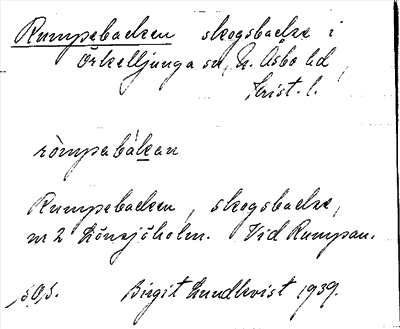 Rumpebacken skogsbacke i
Örkelljunga sn, N. Åsbo hd,
Krist. l.
ròmpebákan
Rumpebacken, skogsbacke,
m 2 Lönsjöholm. Vid Rumpan.
Birgit Lundkvist 1939.